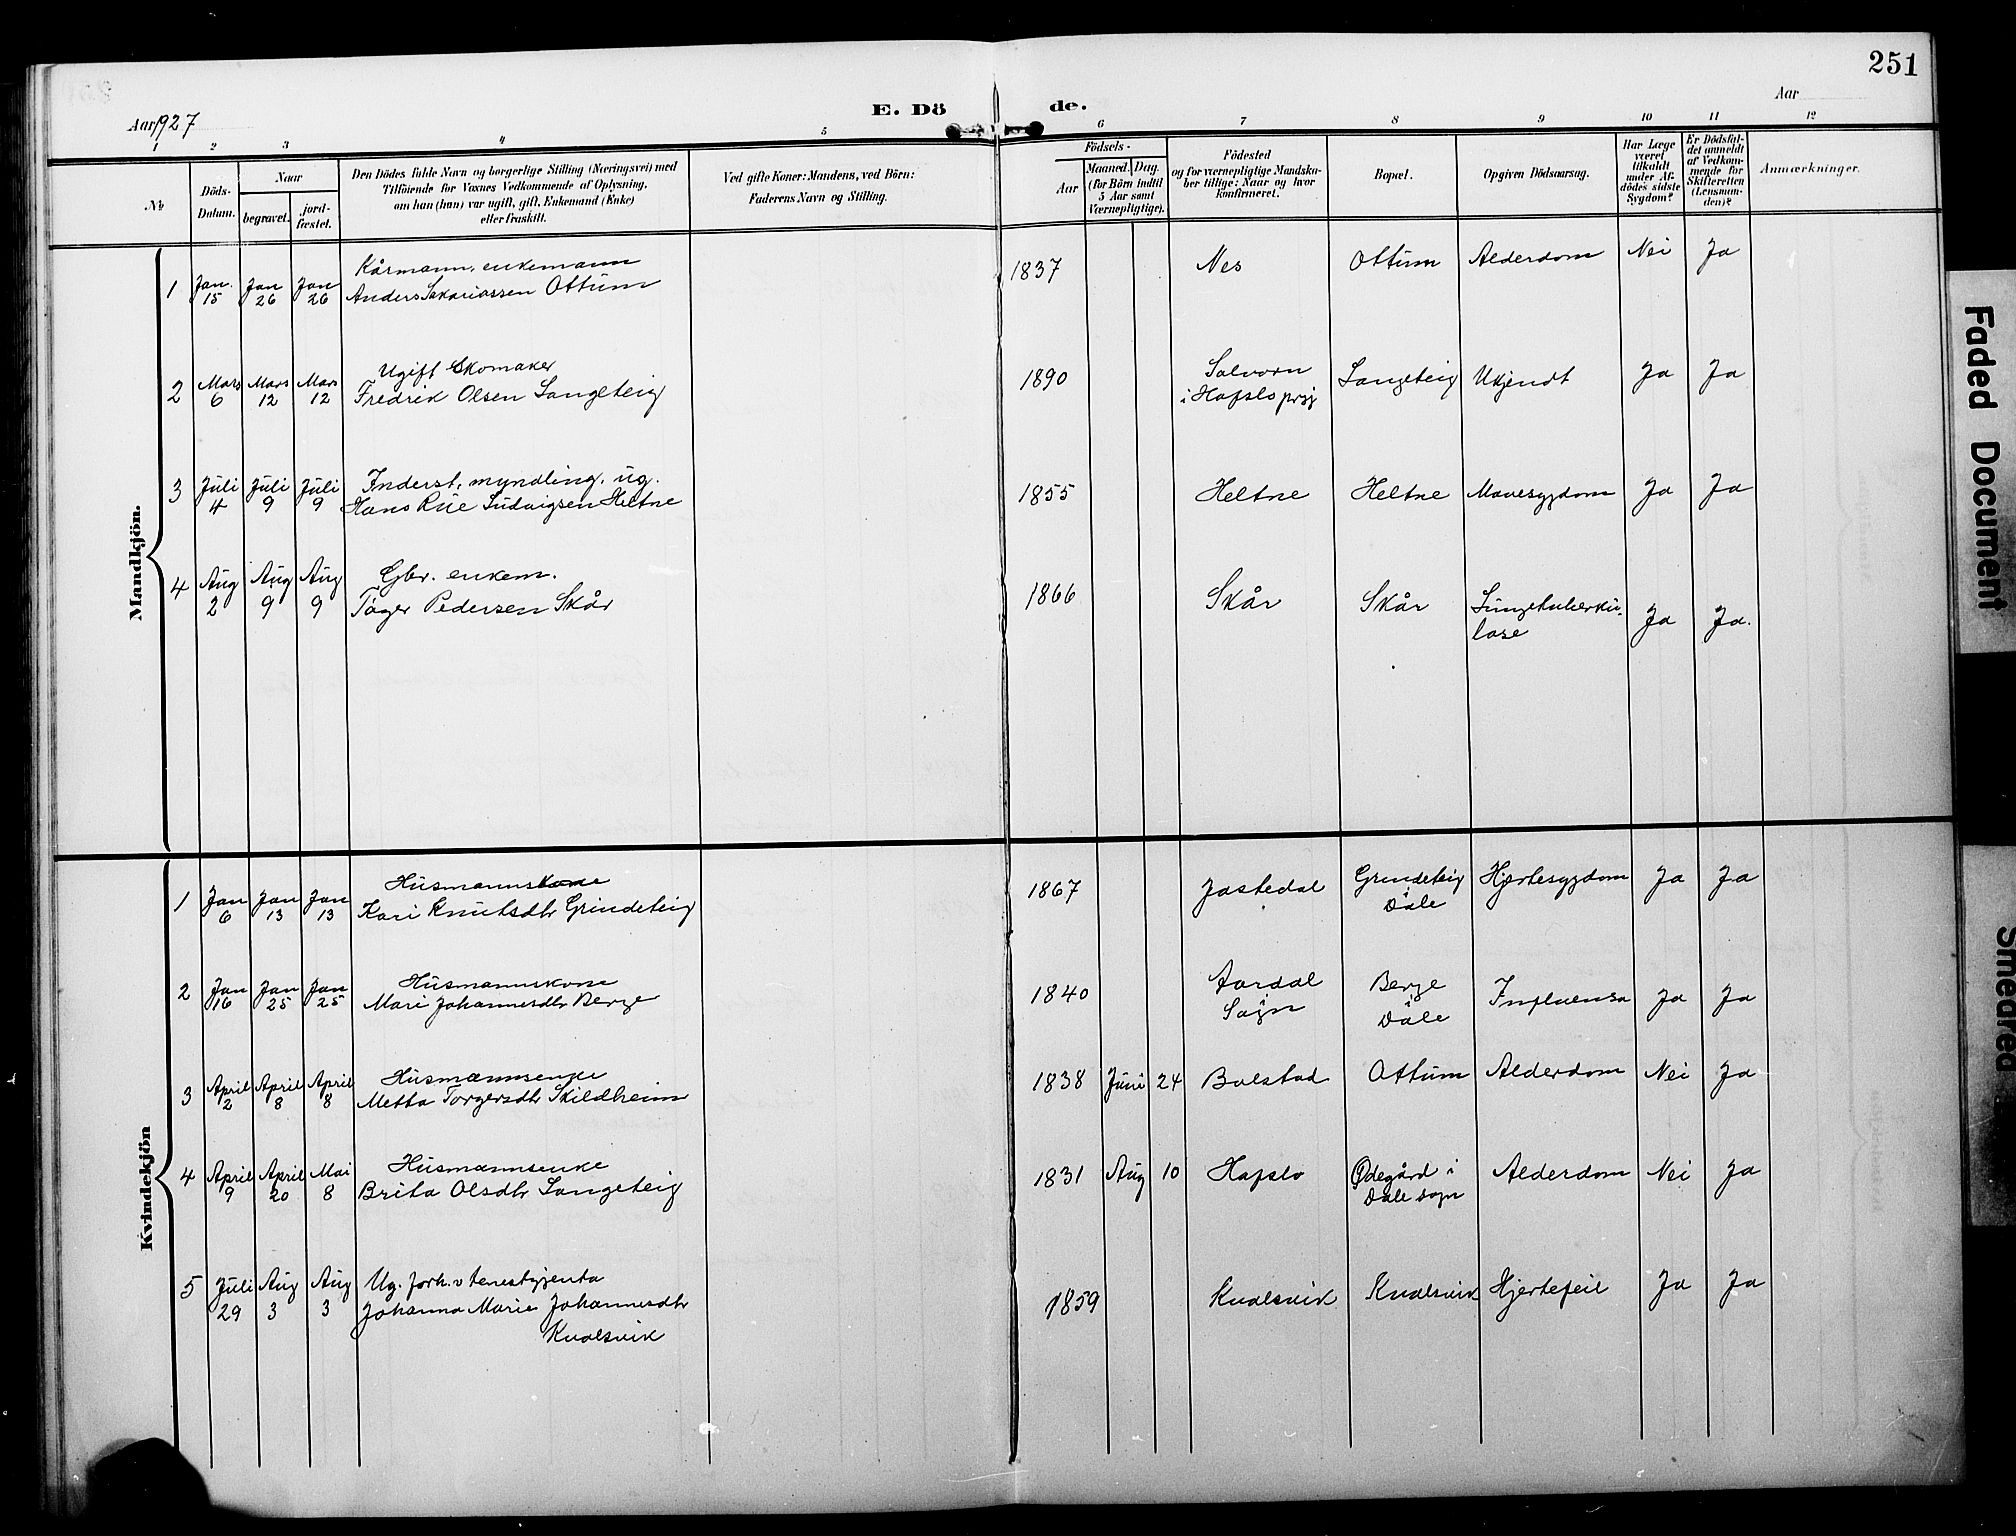 251
E. Dö de.
Aar 1927
Aar
1 2 3 4 5 6 7 8 9 10 11 12
No
Döds-Datum.
Naar
begravet.
jord-fæstet.
Den Dödes fulde Navn og borgerlige Stilling (Næringsvei) med
Tilföiende for Voxnes Vedkommende af Oplysning,
om han (hun) var ugift, gift, Enkemand (Enke)
eller fraskilt.
Ved gifte Koner: Mandens, ved Börn:
Faderens Navn og Stilling.
Födsels-
Aar
Maaned. Dag.
(for Börn indtil
5 Aar samt
Værnepligtige).
Födested
og for værnepligtige Mandska-
ber tillige: Naar og hvor
konfirmeret.
Bopæl.
Opgiven Dödsaarsag.
Har Læge
været
tilkaldt
under Af-
dödes sidste
Sygdom?
Er Dödsfal-
det anmeldt
af Vedkom-
mende for
Skifteretten
(Lensman-
den)?
Anmærkninger.
Mandkjön.
1 Jan. 15 Jan 26 Jan 26 Kårmann, enkemann
Anders Sakariassen Ottum 1837 Nes Ottum Alderdom Nei Ja
2 Mars 6 Mars 12 Mars 12 Ugift Skomaker
Fredrik Olsen Langeteig 1890 Solvorn
i Hafslo prgj Langeteig Ukjendt Ja Ja
3 Juli 4 Juli 9 Juli 9 Inderst, myndling, ug.
Hans Rue Ludvigsen Heltne 1855 Heltne Heltne Mavesygdom Ja Ja
4 Aug 2 Aug 9 Aug 9 Gbr. enkem.
Tøger Pedersen Skår 1866 Skår Skår Lungetuberku-
lose Ja Ja.
Kvindekjön
1 Jan 6 Jan 13 Jan 13 Husmannskone
Kari Knutsdtr Grindeteig 1867 Jostedal Grindeteig
i
Dale Hjertesygdom Ja Ja
2 Jan 16 Jan 25 Jan 25 Husmannskone
Mari Johannesdtr Berge 1840 Aardal
i
Sogn Berge
i
Dale Influensa Ja Ja
3 April 2 April 8 April 8 Husmannsenke
Metta Torgersdtr Skildheim 1838 Juni 24 Bolstad Ottum Alderdom Nei Ja
4 April 9 April 20 Mai 8 Husmannsenke
Brita Olsdtr Langeteig 1831 Aug 10 Hafslo Ødegård i
Dale sogn Alderdom Nei Ja
5 Juli 29 Aug 3 Aug 3 Ug. forh.v tenestgjenta
Johanna Marie Johannesdtr
Kvalsvik 1859 Kvalsvik Kvalsvik Hjertefeil Ja Ja
Faded Document
Smeared